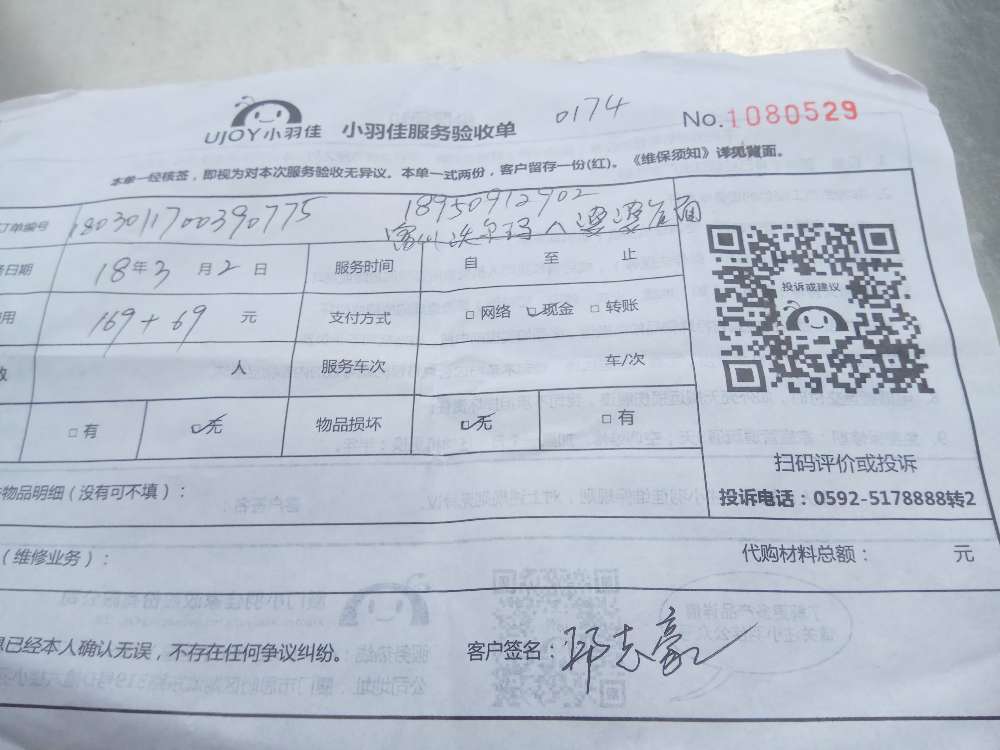 UJOY小羽佳 小羽佳服务验收单 0174 No.1080529
本单一经核签，即视为对本次服务验收无异议。本单一式两份，客户留存一份(红)。《维保须知》详见背面。
订单编号 1803011700390775 18950912902
沃尔玛八婆婆
务日期 18年3月2日 服务时间 自 至 止
用 169+69 元 支付方式 □网络 □现金 □转账
数 人 服务车次 车/次
□有 □无 物品损坏 □无 □有
投诉或建议
扫码评价或投诉
物品明细（没有可不填）：
投诉电话：0592-5178888转2
（维修业务）： 代购材料总额： 元
息已经本人确认无误，不存在任何争议纠纷。 客户签名：邓志豪